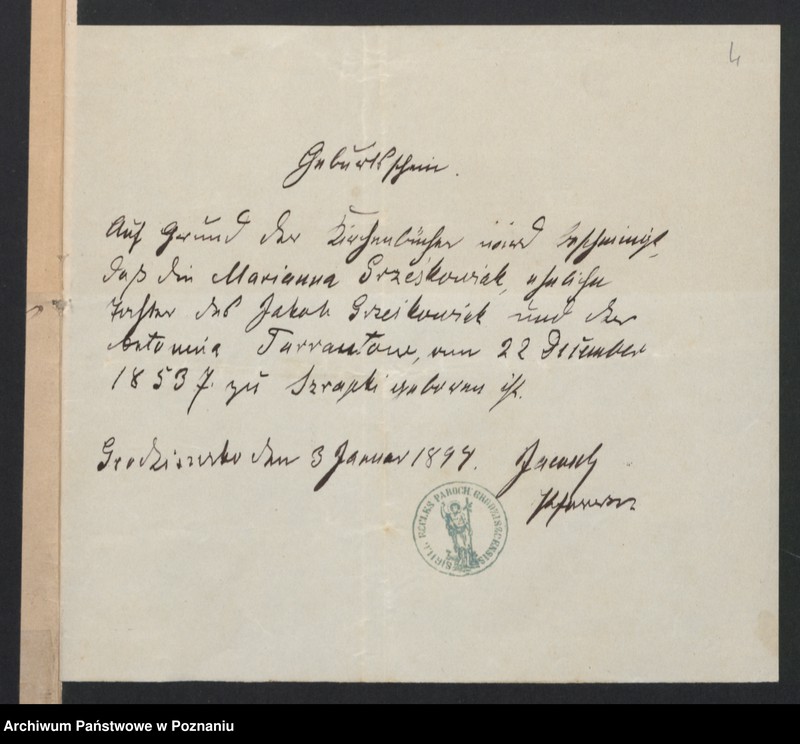 4
Geburtsschein.
Auf Grund der Kirchenbücher wird bescheinigt,
daß die Marianna Grześkowiak, eheliche
Tochter des Jakob Grześkowiak und der
Antonina am 22 December
1853 J. zu geboren ist.
Grodziszczko den 3 Januar 1897.
Pfarrer
SIGILL. ECCLES PAROCH GRODZISZCENSIS
Archiwum Państwowe w Poznaniu